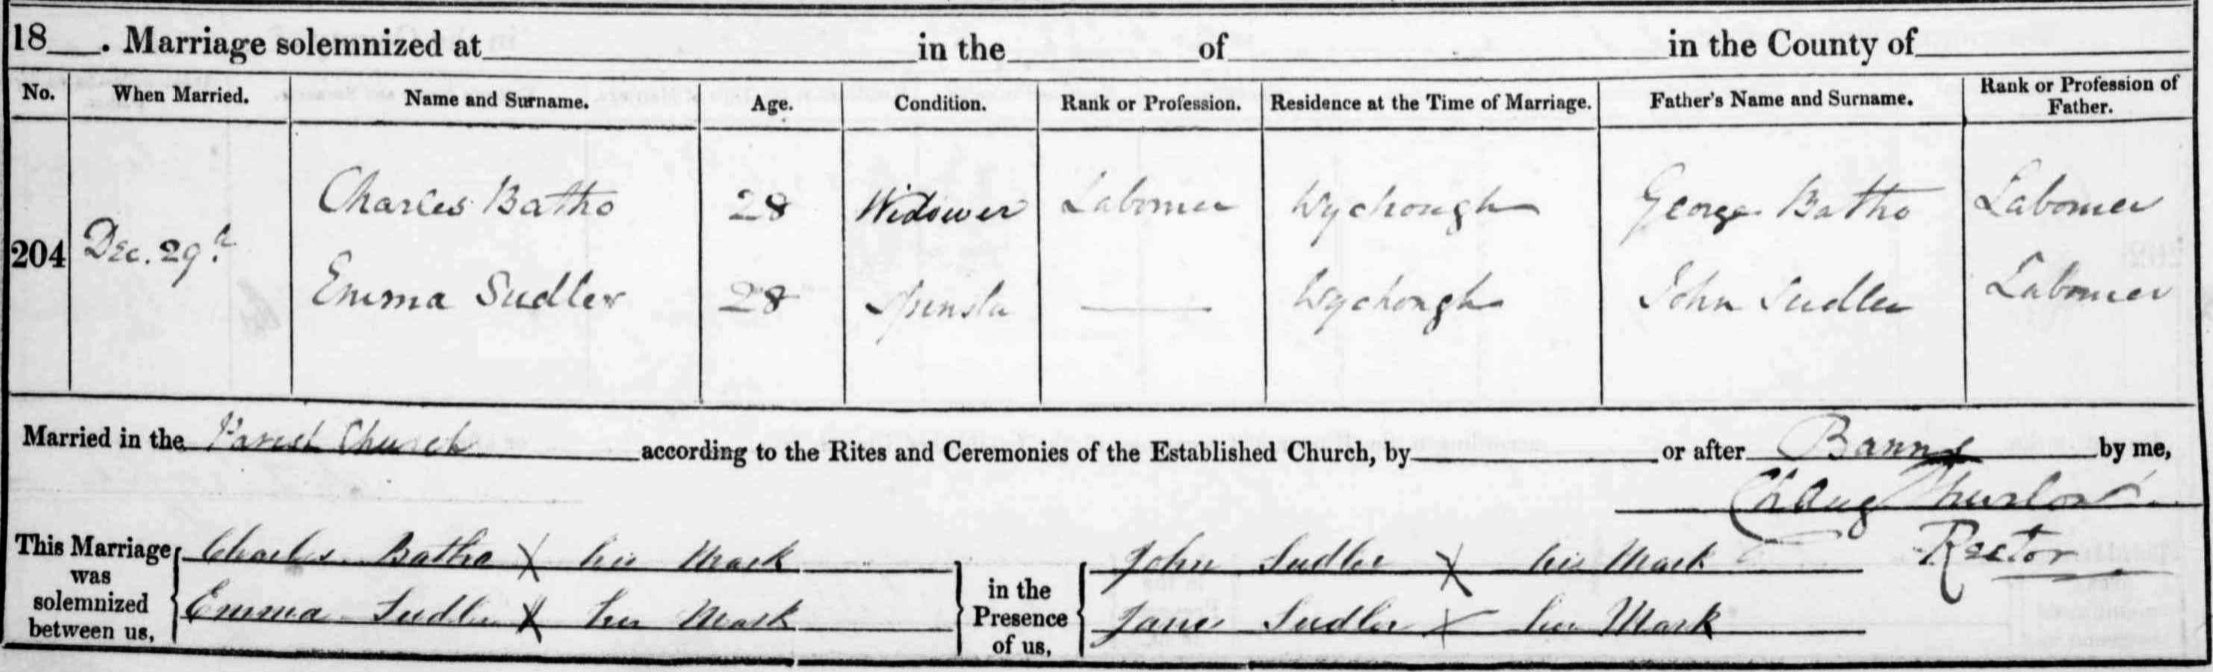 18 . Marriage solemnized at in the of in the County of
No. When Married. Name and Surname. Age. Condition. Rank or Profession. Residence at the Time of Marriage. Father's Name and Surname. Rank or Profession of Father.
204 Dec. 29th Charles Batho 28 Widower Labourer Wychough George Batho Labourer
Emma Sudler 28 Spinster Wychough John Sudler Labourer
Married in the Parish Church according to the Rites and Ceremonies of the Established Church, by or after Banns by me,
Chas Aug Thurlow
Rector
This Marriage was solemnized between us, Charles Batho X his Mark in the Presence of us, John Sudler X his Mark
Emma Sudler X her Mark Jane Sudler X her Mark